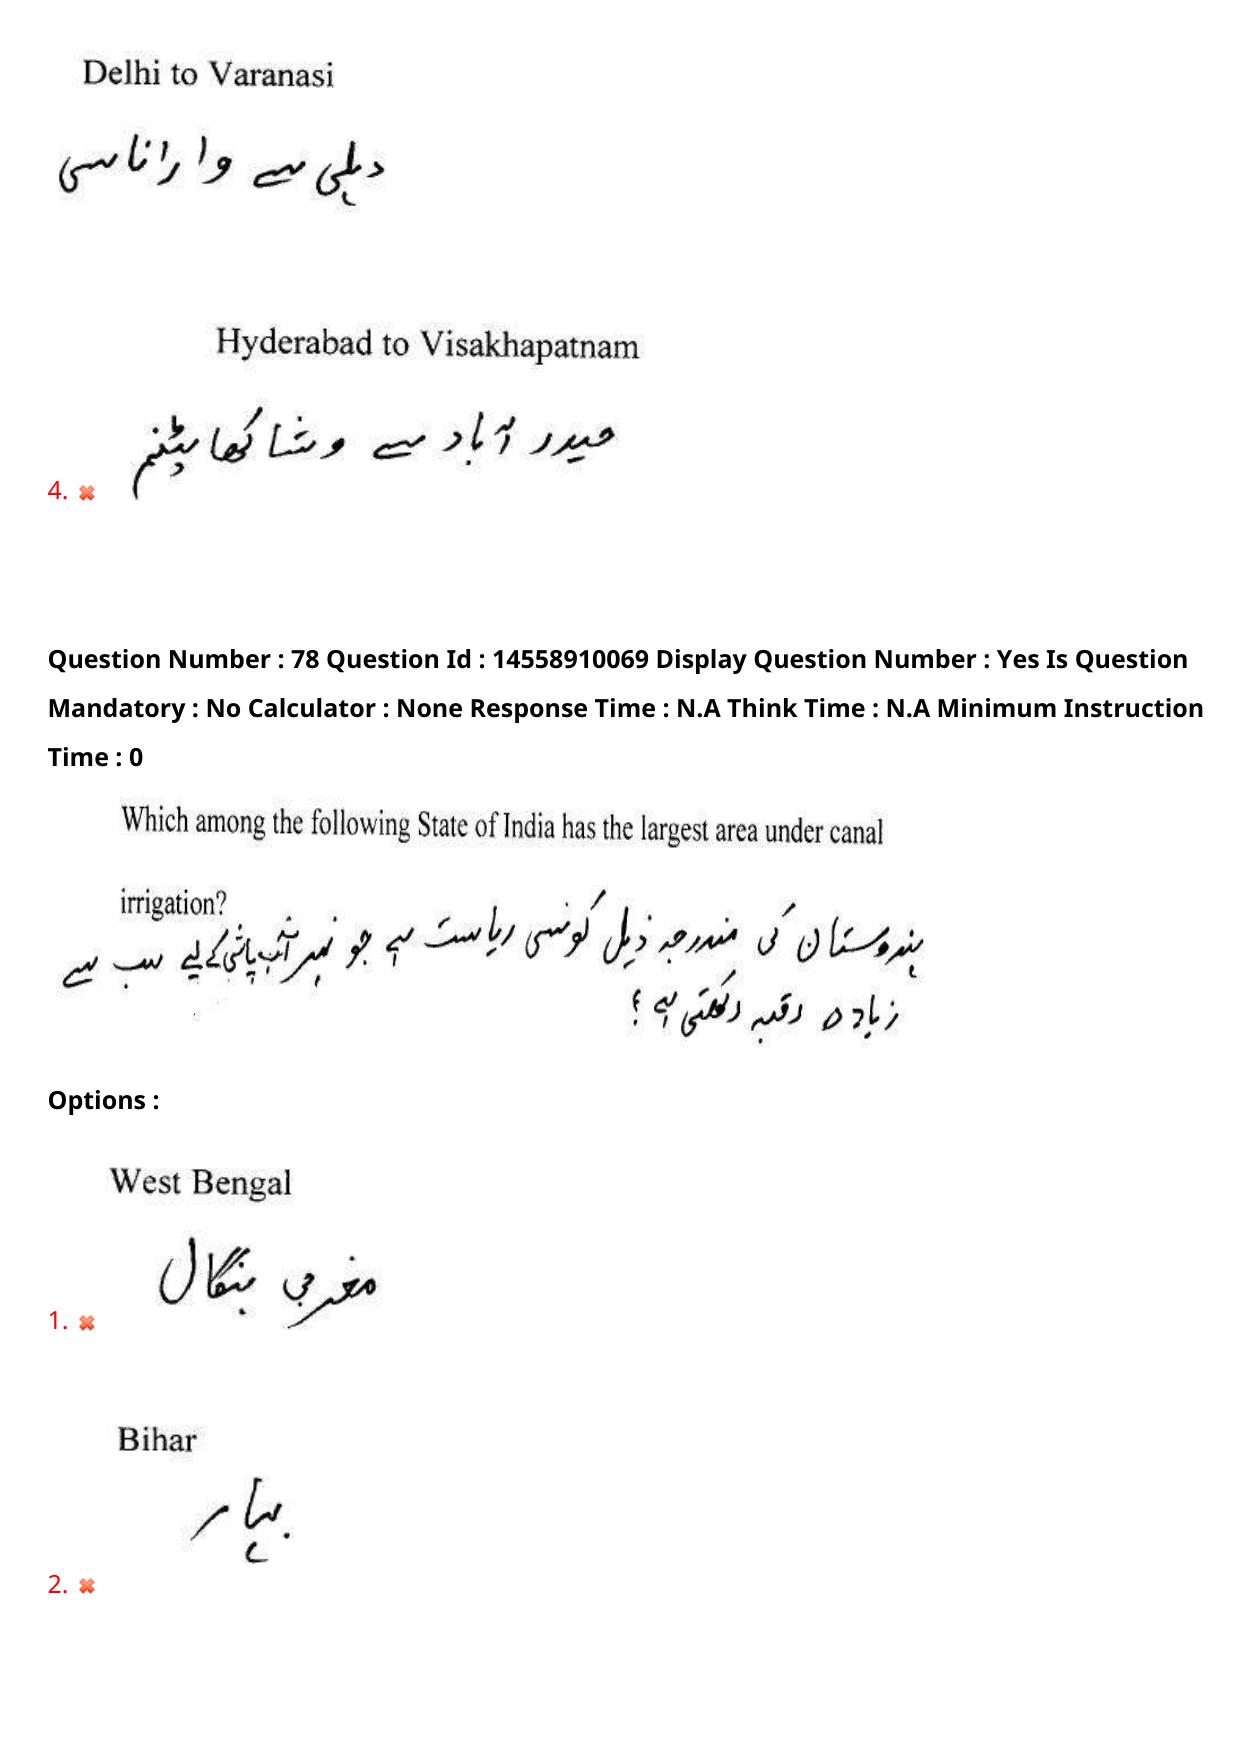 Delhi to Varanasi
دہلی سے واراناسی
Hyderabad to Visakhapatnam
حیدر آباد سے وشاکھاپٹنم
4.
Question Number : 78 Question Id : 14558910069 Display Question Number : Yes Is Question
Mandatory : No Calculator : None Response Time : N.A Think Time : N.A Minimum Instruction
Time : 0
Which among the following State of India has the largest area under canal
irrigation?
ہندوستان کی مندرجہ ذیل کونسی ریاست ہے جو نہر آب پاشی کے لیے سب سے
زیادہ رقبہ رکھتی ہے ؟
Options :
West Bengal
مغربی بنگال
1.
Bihar
بہار
2.